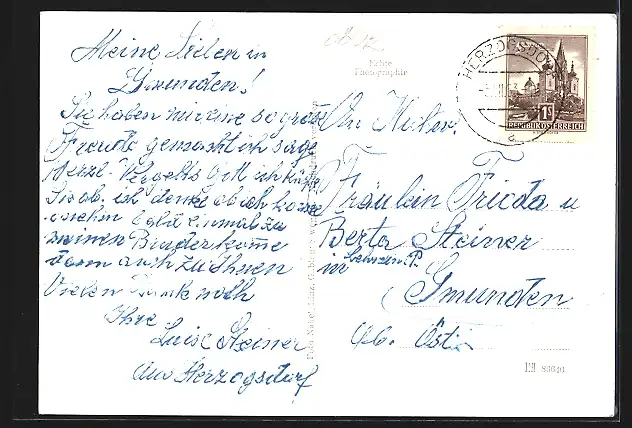 Meine Lieben in
Gmunden!
Sie haben mir eine so große
Freude gemacht ich sage
Herzl. Vergelts Gott ich
ich denke ob ich
einmal zu
meinen Bruder kome
dann auch zu Ihnen
Vielen Dank noch
Ihre
Luise Steiner
aus Herzogsdorf
Echte
Photographie
HERZOGSDORF
1S
REPUBLIK ÖSTERREICH
An
Fräulein Frieda u
Berta Steiner
in
Gmunden
Ob. Öst.